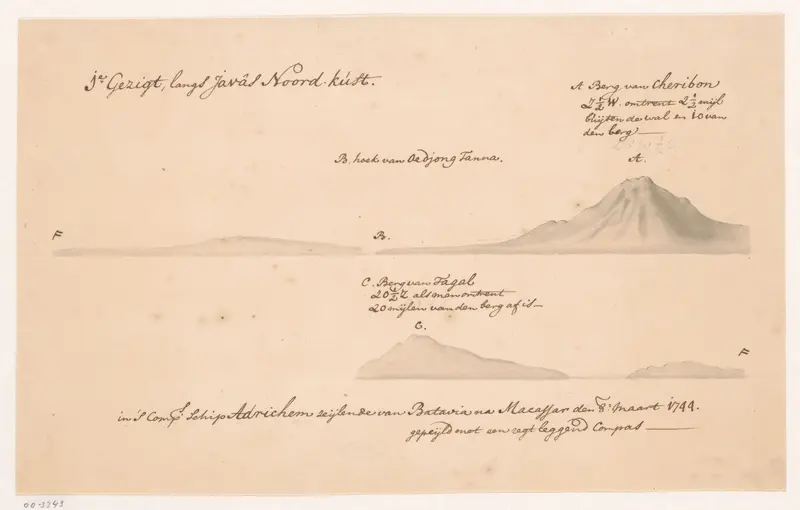 1e Gezigt, langs Javâs Noord-kúst.
A Berg van Cheribon
Z ½ W. omtrent 2 ½ mijl
buijten de wal en 10 van
den berg—
B. hoek van Oedjong Tanna.
A.
F
B.
C. Berg van Tagal
20 ½ Z als men omtrent
20 mijlen van den berg af is—
C.
F
in 'S Comps. Schip Adrichem zeijlende van Batavia na Macassar den 8e maart 1744.
gepeijld met een regt leggend Compas—
00-3245